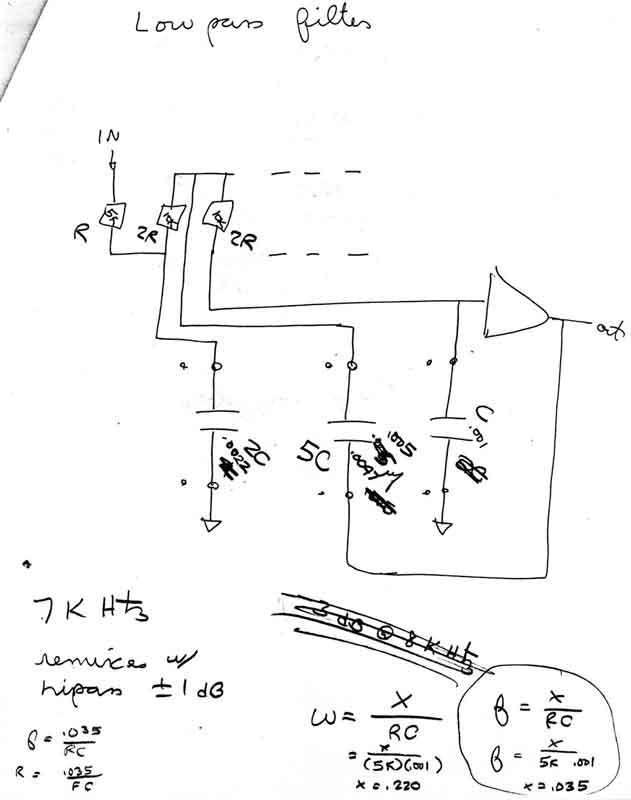 Low pass filter
IN
5K
10K
10K
R
2R
2R
out
2C
.0022
5C
.005
.0047
C
.001
7 K Htz
remixes w/
hipass ±1 dB
3 dB @ 8 K Htz
ω = X / RC
= X / (5K)(.001)
x = .220
f = X / RC
f = X / 5K .001
x = .035
f = .035 / RC
R = .035 / FC